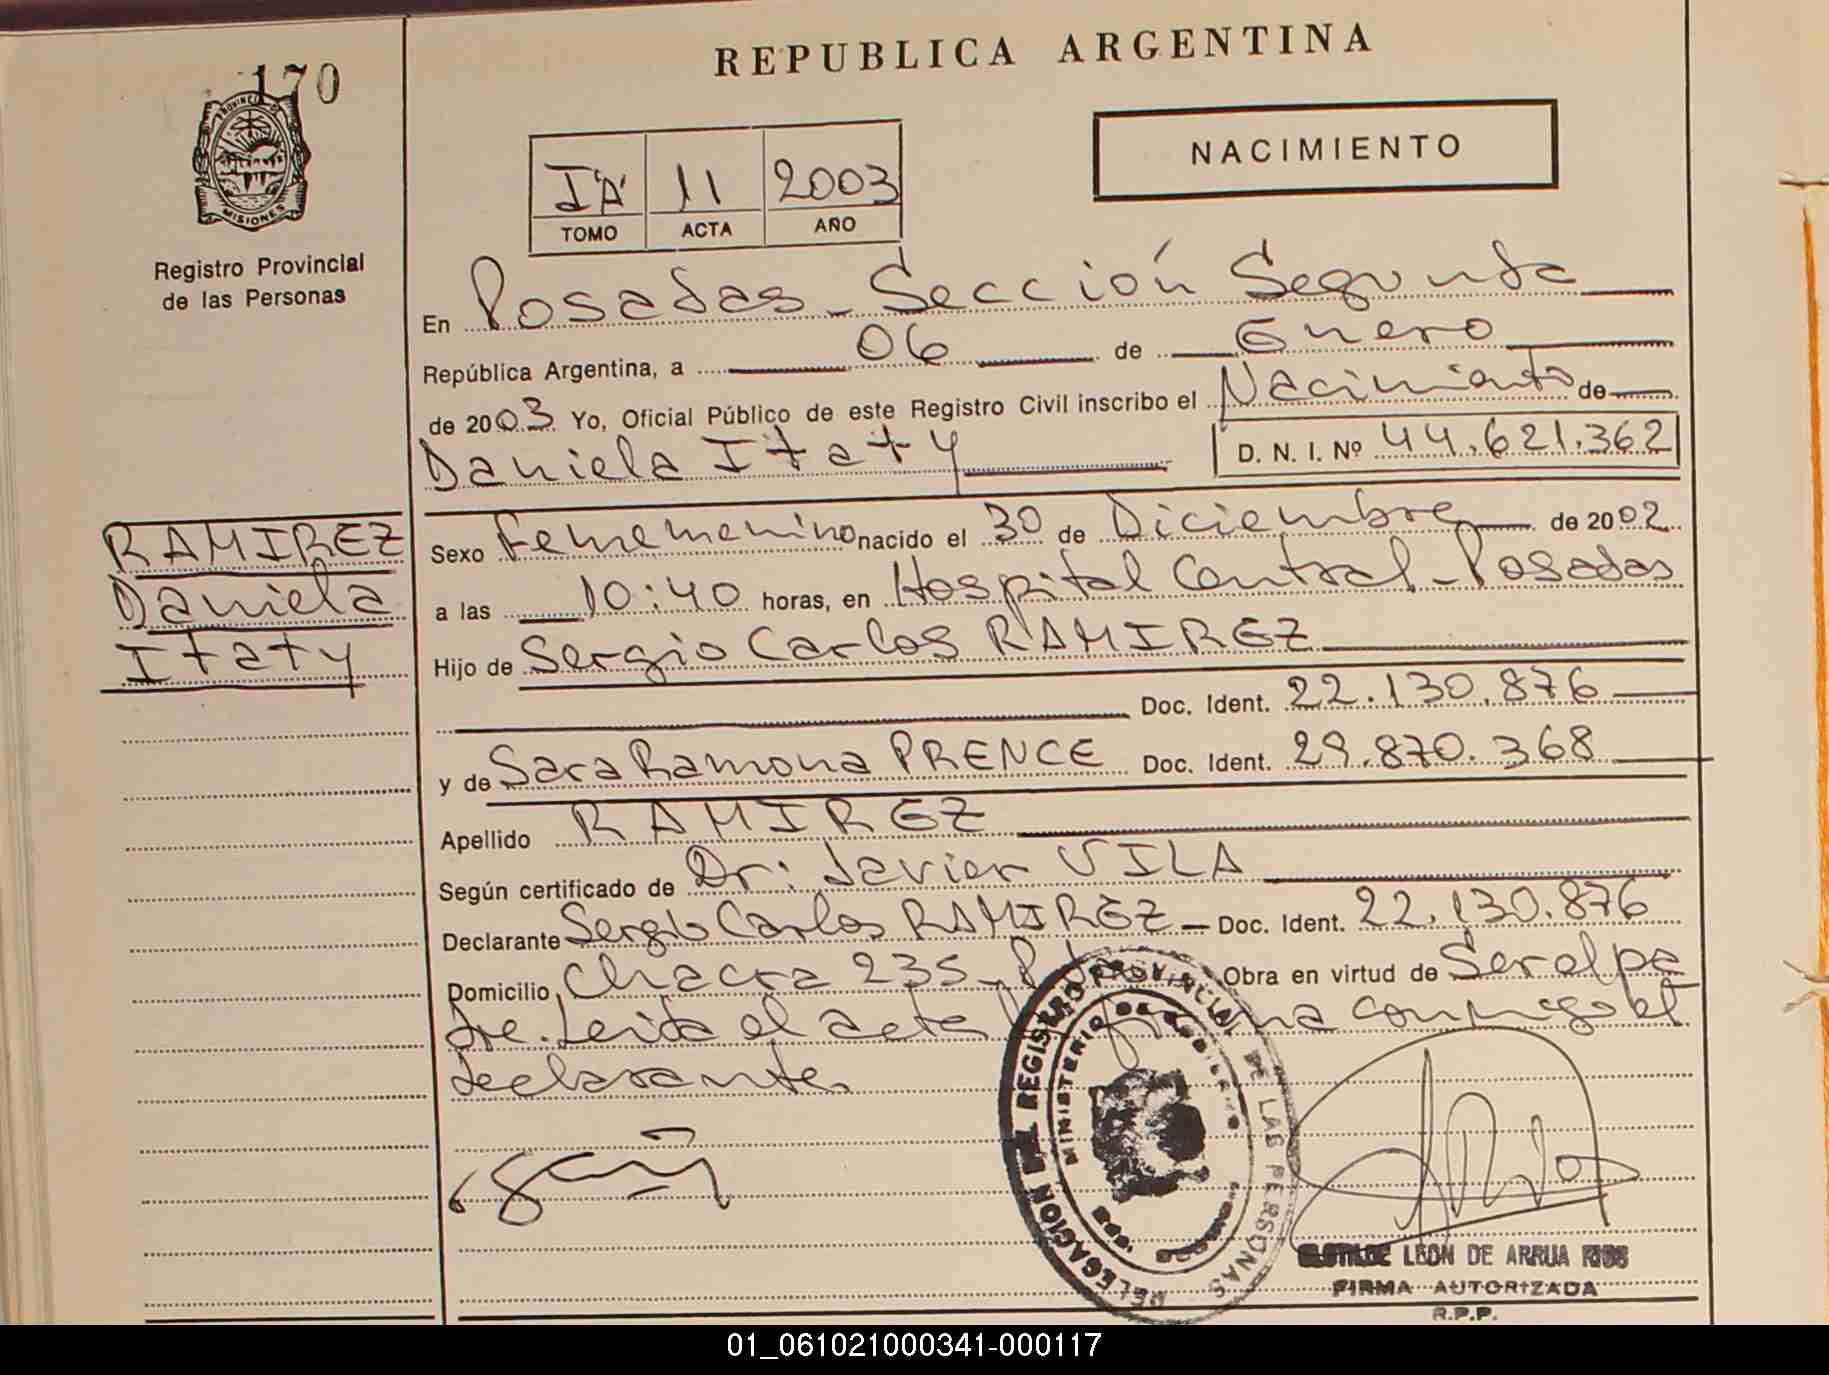 170
PROVINCIA DE
MISIONES
Registro Provincial
de las Personas
RAMIREZ
Daniela
Itaty
REPUBLICA ARGENTINA
NACIMIENTO
I"A" 11 2003
TOMO ACTA AÑO
En Posadas - Sección Segunda
República Argentina, a 06 de Enero
de 2003 Yo, Oficial Público de este Registro Civil inscribo el Nacimiento de
Daniela Itaty D. N. I. Nº 44.621.362
Sexo Fememenino nacido el 30 de Diciembre de 2002
a las 10:40 horas, en Hospital Central - Posadas
Hijo de Sergio Carlos RAMIREZ
Doc. Ident. 22.130.876
y de Sara Ramona PRENCE Doc. Ident. 29.870.368
Apellido RAMIREZ
Según certificado de Dr: Javier VILA
Declarante Sergio Carlos RAMIREZ - Doc. Ident. 22.130.876
Domicilio Chacra 235 - Obra en virtud de Ser el pa
dre. Leída el acta firma conmigo el
declarante
DELEGACION DE REGISTRO PROVINCIAL DE LAS PERSONAS
MINISTERIO DE GOBIERNO
POSADAS
LEON DE ARRUA RIOS
FIRMA AUTORIZADA
R.P.P.
01_061021000341-000117